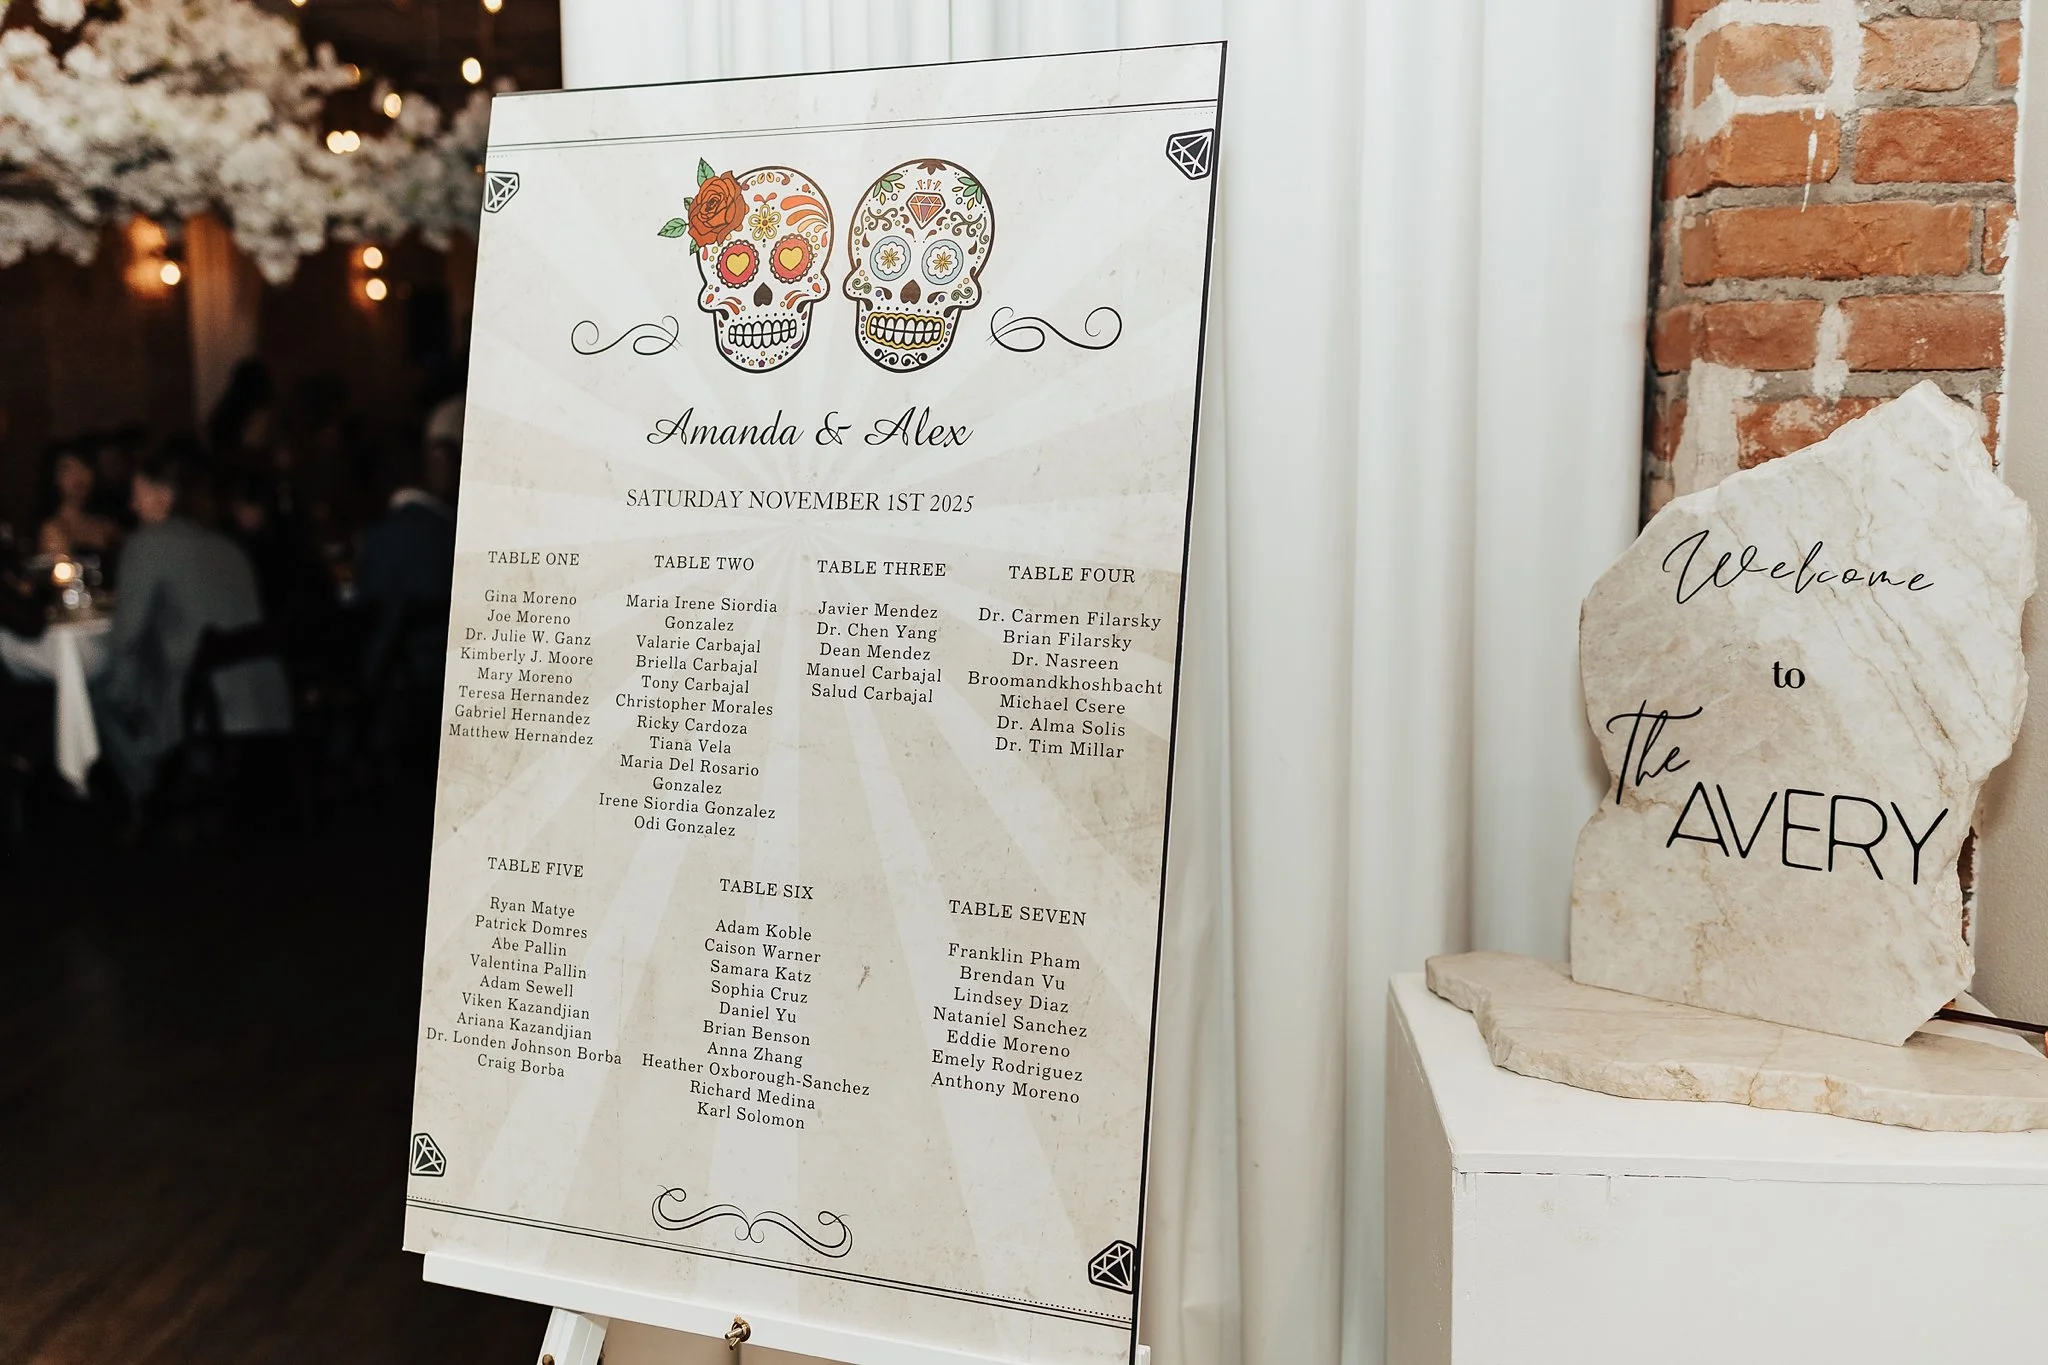 Amanda & Alex
SATURDAY NOVEMBER 1ST 2025
TABLE ONE
Gina Moreno
Joe Moreno
Dr. Julie W. Ganz
Kimberly J. Moore
Mary Moreno
Teresa Hernandez
Gabriel Hernandez
Matthew Hernandez
TABLE TWO
Maria Irene Siordia
Gonzalez
Valarie Carbajal
Briella Carbajal
Tony Carbajal
Christopher Morales
Ricky Cardoza
Tiana Vela
Maria Del Rosario
Gonzalez
Irene Siordia Gonzalez
Odi Gonzalez
TABLE THREE
Javier Mendez
Dr. Chen Yang
Dean Mendez
Manuel Carbajal
Salud Carbajal
TABLE FOUR
Dr. Carmen Filarsky
Brian Filarsky
Dr. Nasreen
Broomandkhoshbacht
Michael Csere
Dr. Alma Solis
Dr. Tim Millar
TABLE FIVE
Ryan Matye
Patrick Domres
Abe Pallin
Valentina Pallin
Adam Sewell
Viken Kazandjian
Ariana Kazandjian
Dr. Londen Johnson Borba
Craig Borba
TABLE SIX
Adam Koble
Caison Warner
Samara Katz
Sophia Cruz
Daniel Yu
Brian Benson
Anna Zhang
Heather Oxborough-Sanchez
Richard Medina
Karl Solomon
TABLE SEVEN
Franklin Pham
Brendan Vu
Lindsey Diaz
Nataniel Sanchez
Eddie Moreno
Emely Rodriguez
Anthony Moreno
Welcome
to
The
AVERY